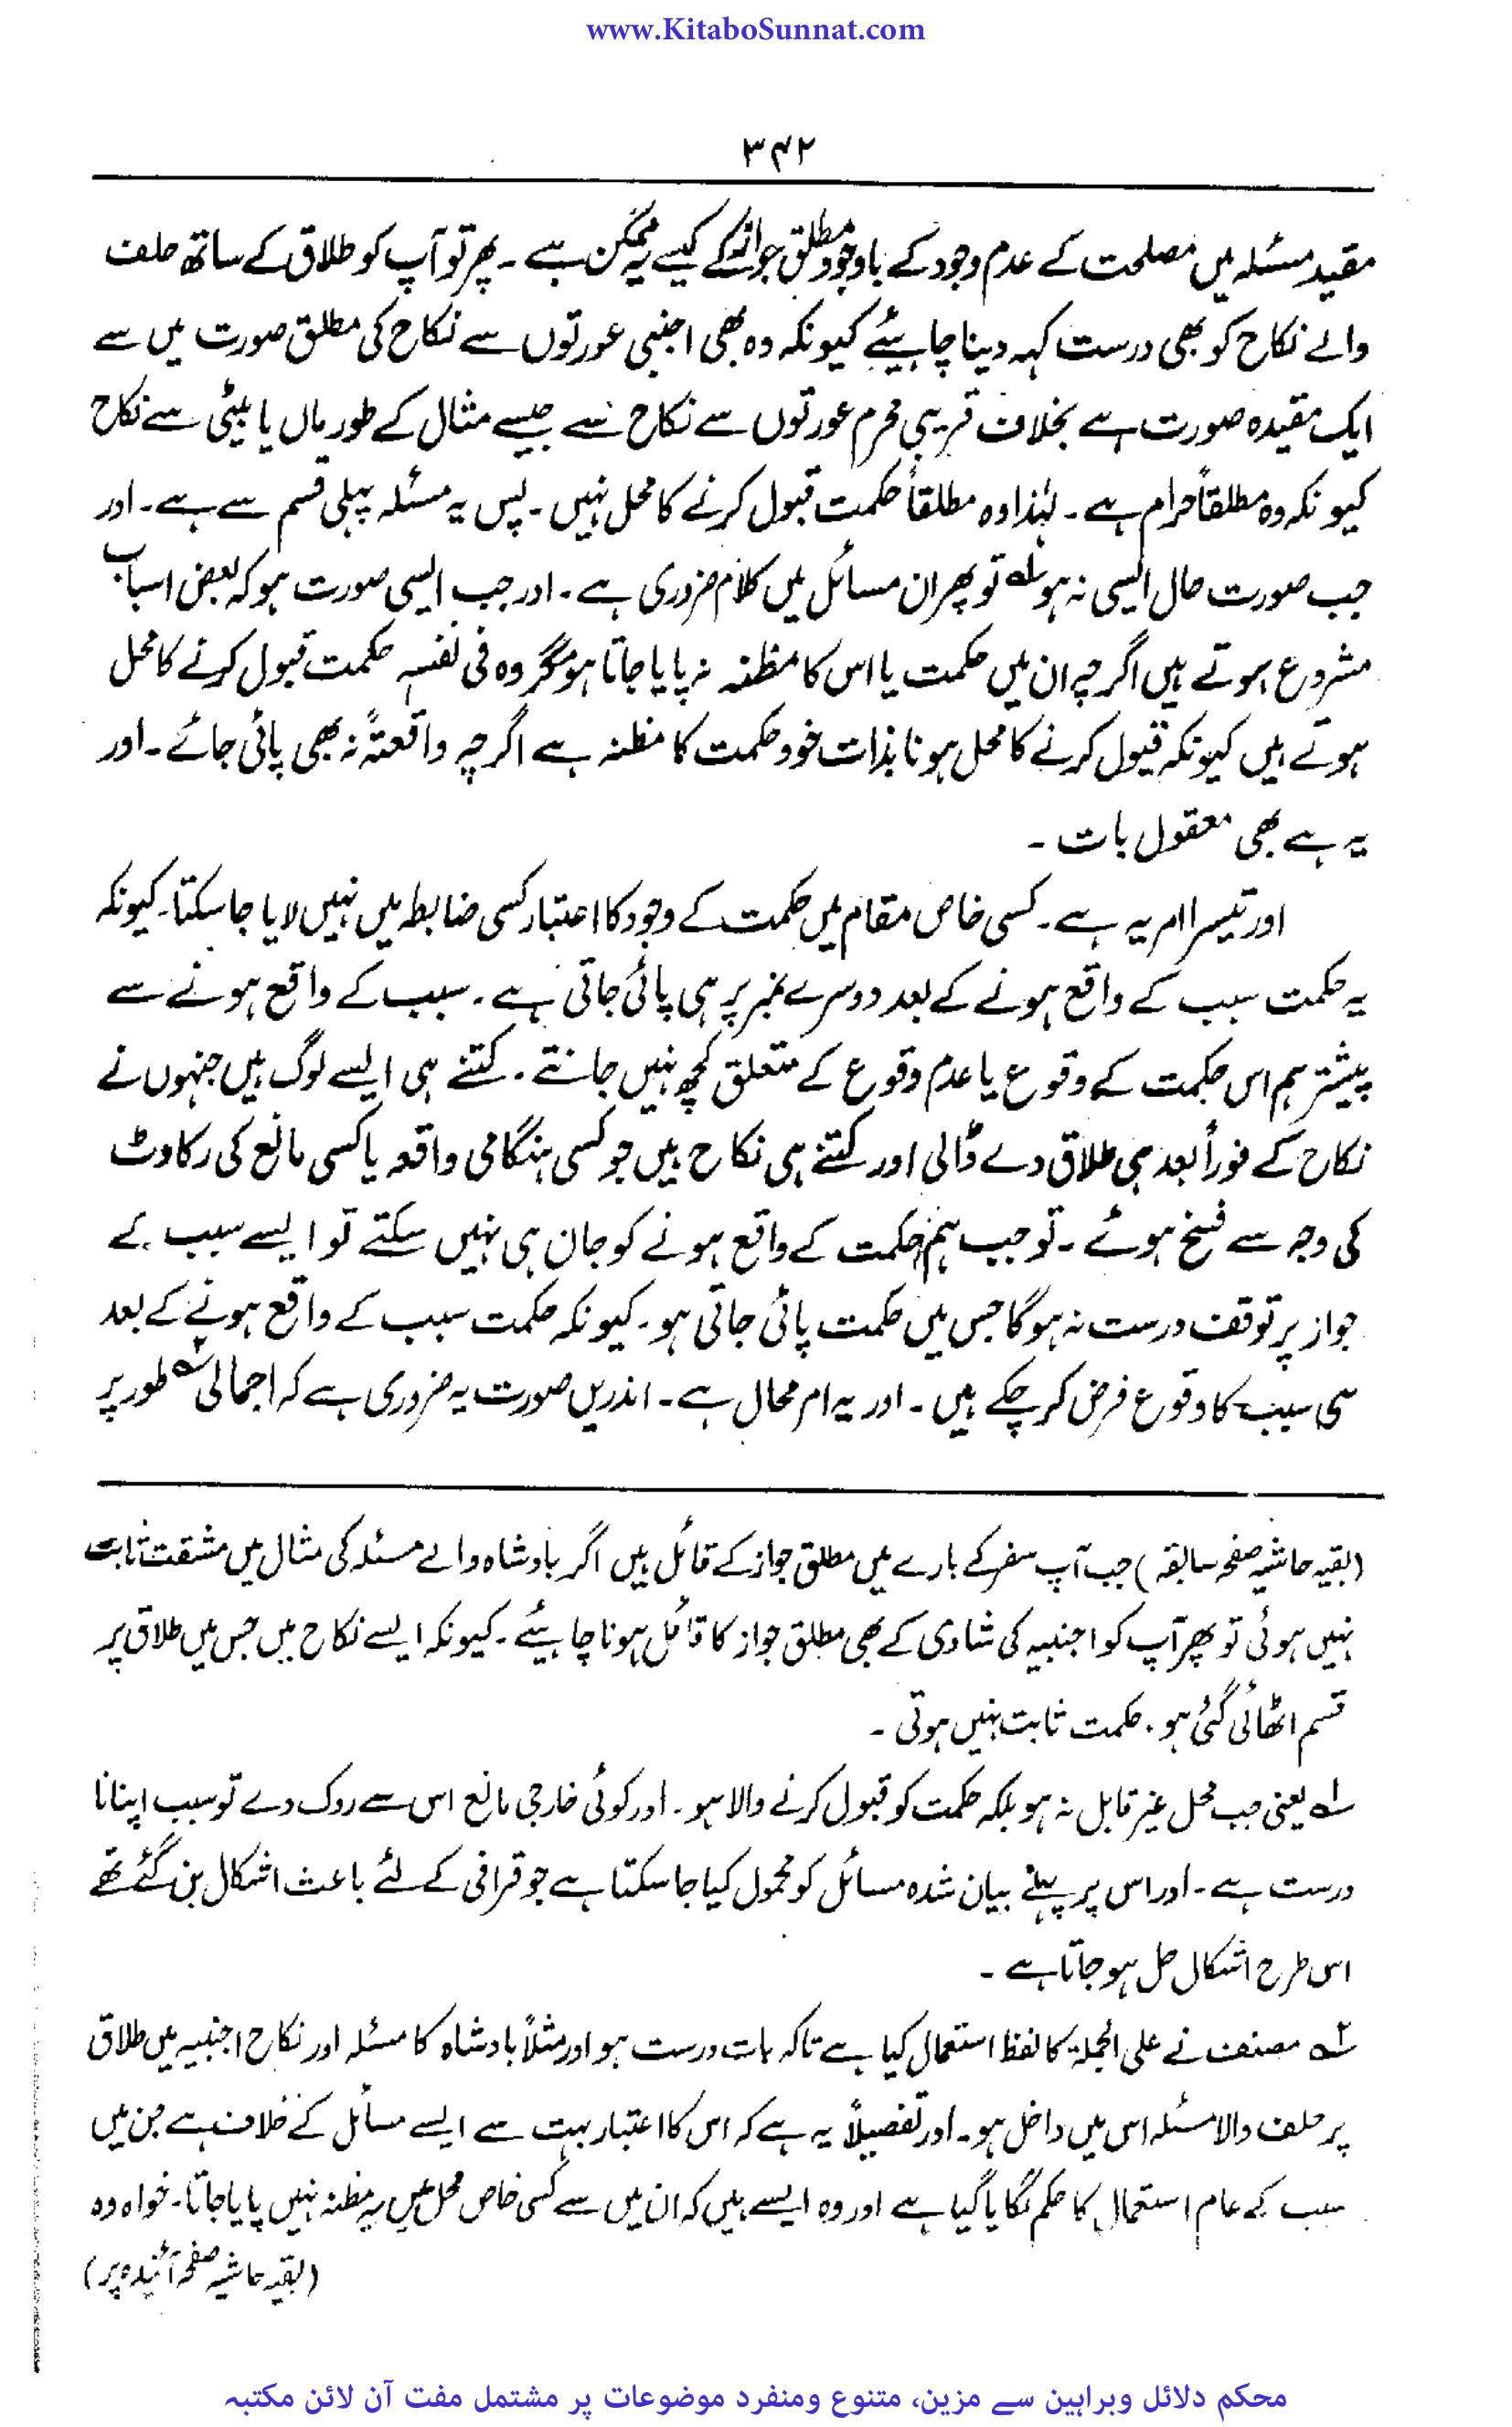 www.KitaboSunnat.com
۳۴۲
مقید مسئلہ میں مصلحت کے عدم وجود کے باوجود مطلق جواز کے کیسے یہ ممکن ہے ۔ پھر تو آپ کو طلاق کے ساتھ حلف
والے نکاح کو بھی درست کہہ دینا چاہیئے کیونکہ وہ بھی اجنبی عورتوں سے نکاح کی مطلق صورت میں سے
ایک مقیدہ صورت ہے بخلاف قریبی محرم عورتوں سے نکاح سے جیسے مثال کے طور ماں یا بیٹی سے نکاح
کیونکہ وہ مطلقاً حرام ہے ۔ لہٰذا وہ مطلقاً حکمت قبول کرنے کا محل نہیں ۔ پس یہ مسئلہ پہلی قسم سے ہے ۔ اور
جب صورت حال ایسی نہ ہو لہ تو پھر ان مسائل میں کلام ضروری ہے ۔ اور جب ایسی صورت ہو کہ بعض اسباب
مشروع ہوتے ہیں اگرچہ ان میں حکمت یا اس کا مظنہ نہ پایا جاتا ہو مگر وہ فی نفسہٖ حکمت قبول کرنے کا محل
ہوتے ہیں کیونکہ قبول کرنے کا محل ہونا بذات خود حکمت کا مظنہ ہے اگرچہ واقعتہً نہ بھی پائی جائے ۔ اور
یہ ہے بھی معقول بات ۔
اور تیسرا امر یہ ہے ۔ کسی خاص مقام میں حکمت کے وجود کا اعتبار کسی ضابطہ میں نہیں لایا جا سکتا ۔ کیونکہ
یہ حکمت سبب کے واقع ہونے کے بعد دوسرے نمبر پر ہی پائی جاتی ہے ۔ سبب کے واقع ہونے سے
پیشتر ہم اس حکمت کے وقوع یا عدم وقوع کے متعلق کچھ نہیں جانتے ۔ کتنے ہی ایسے لوگ ہیں جنہوں نے
نکاح کے فوراً بعد ہی طلاق دے ڈالی اور کتنے ہی نکاح ہیں جو کسی ہنگامی واقعہ یا کسی مانع کی رکاوٹ
کی وجہ سے فسخ ہوئے ۔ تو جب ہم حکمت کے واقع ہونے کو جان ہی نہیں سکتے تو ایسے سبب کے
جواز پر توقف درست نہ ہوگا جس میں حکمت پائی جاتی ہو ۔ کیونکہ حکمت سبب کے واقع ہونے کے بعد
ہی سبب کا وقوع فرض کر چکے ہیں ۔ اور یہ امر محال ہے ۔ اندریں صورت یہ ضروری ہے کہ اجمالی ۲ہ طور پر
(بقیہ حاشیہ صفحہ سابقہ) جب آپ سفر کے بارے میں مطلق جواز کے قائل ہیں اگر بادشاہ والے مسئلہ کی مثال میں مشقت ثابت
نہیں ہوئی تو پھر آپ کو اجنبیہ کی شادی کے بھی مطلق جواز کا قائل ہونا چاہیئے ۔ کیونکہ ایسے نکاح میں جس میں طلاق پر
قسم اٹھائی گئی ہو ۔ حکمت ثابت نہیں ہوتی ۔
لہ یعنی جب محل غیر قابل نہ ہو بلکہ حکمت کو قبول کرنے والا ہو ۔ اور کوئی خارجی مانع اس سے روک دے تو سبب اپنانا
درست ہے ۔ اور اس پر پہلے بیان شدہ مسائل کو محمول کیا جا سکتا ہے جو قرافی کے لئے باعث اشکال بن گئے تھے
اس طرح اشکال حل ہو جاتا ہے ۔
۲ہ مصنف نے علی الجملۃ کا لفظ استعمال کیا ہے تاکہ بات درست ہو اور مثلاً بادشاہ کا مسئلہ اور نکاح اجنبیہ میں طلاق
پر حلف والا مسئلہ اس میں داخل ہو ۔ اور تفصیلاً یہ ہے کہ اس کا اعتبار بہت سے ایسے مسائل کے خلاف ہے جن میں
سبب کے عام استعمال کا حکم لگایا گیا ہے اور وہ ایسے ہیں کہ ان میں سے کسی خاص محل میں یہ مظنہ نہیں پایا جاتا ۔ خواہ وہ
(بقیہ حاشیہ صفحہ آئندہ پر)
محکم دلائل وبراہین سے مزین، متنوع ومنفرد موضوعات پر مشتمل مفت آن لائن مکتبہ